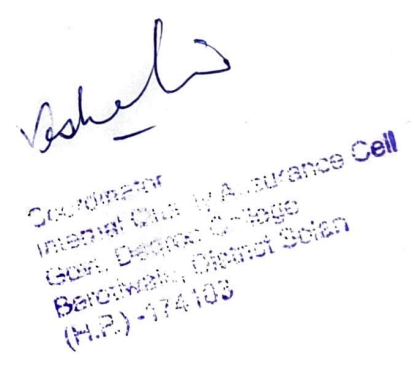 Coordinator
Internal Quality Assurance Cell
Govt. Degree College
Barotiwala, District Solan
(H.P.) -174103